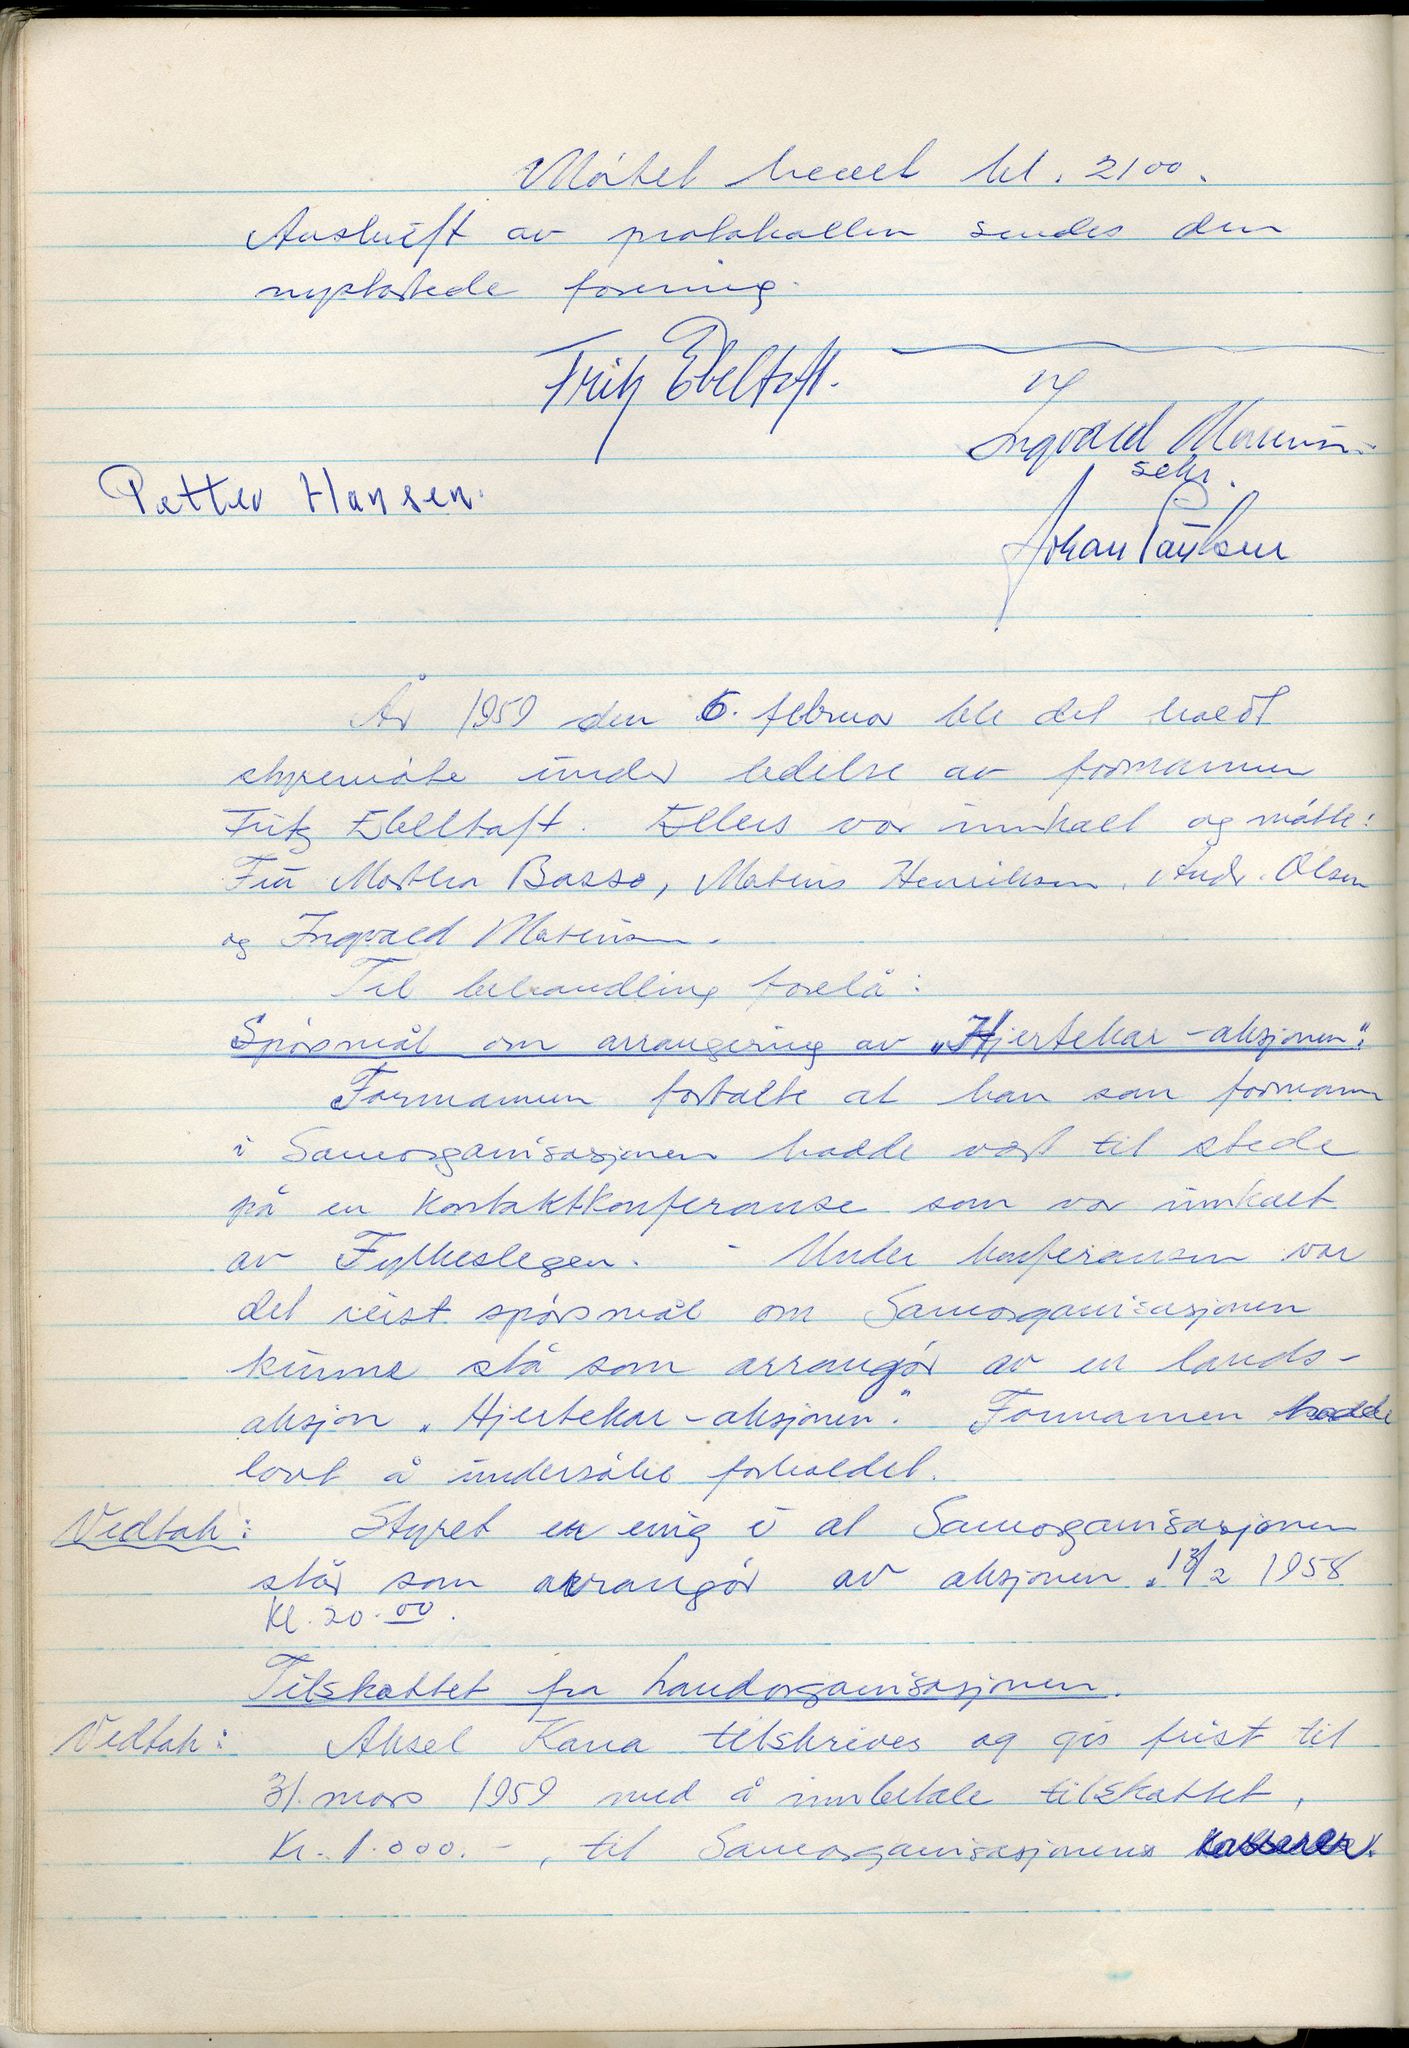 Møtet hevet kl. 2100.
Avskrift av protokollen sendes den
nystartede forening.
Fritz Ebeltoft.
Ingvald Martinsen
sekr.
Petter Hansen.
Johan Paulsen
År 1959 den 6. februar ble det holdt
styremøte under ledelse av formannen
Fritz Ebeltoft. Ellers var innkalt og møtte:
Fru Martha Basso, Matius Henriksen, Andr. Olsen
og Ingvald Martinsen.
Til behandling forelå:
Spørsmål om arrangering av „Hjertekar-aksjonen".
Formannen fortalte at han som formann
i Samorganisasjonen hadde vært til stede
på en kontaktkonferanse som var innkalt
av Fylkeslegen. - Under konferansen var
det reist spørsmål om Samorganisasjonen
kunne stå som arrangør av en lands-
aksjon „Hjertekar-aksjonen". Formannen hadde
lovt å undersøke forholdet.
Vedtak: Styret er enig i at Samorganisasjonen
står som arrangør av aksjonen. /2 1958
Kl. 20.00.
Tilskottet fra landorganisasjonen.
Vedtak: Aksel Kana tilskrives og gis frist til
31. mars 1959 med å innbetale tilskottet,
Kr. 1.000.-, til Samorganisasjonens kasserer.